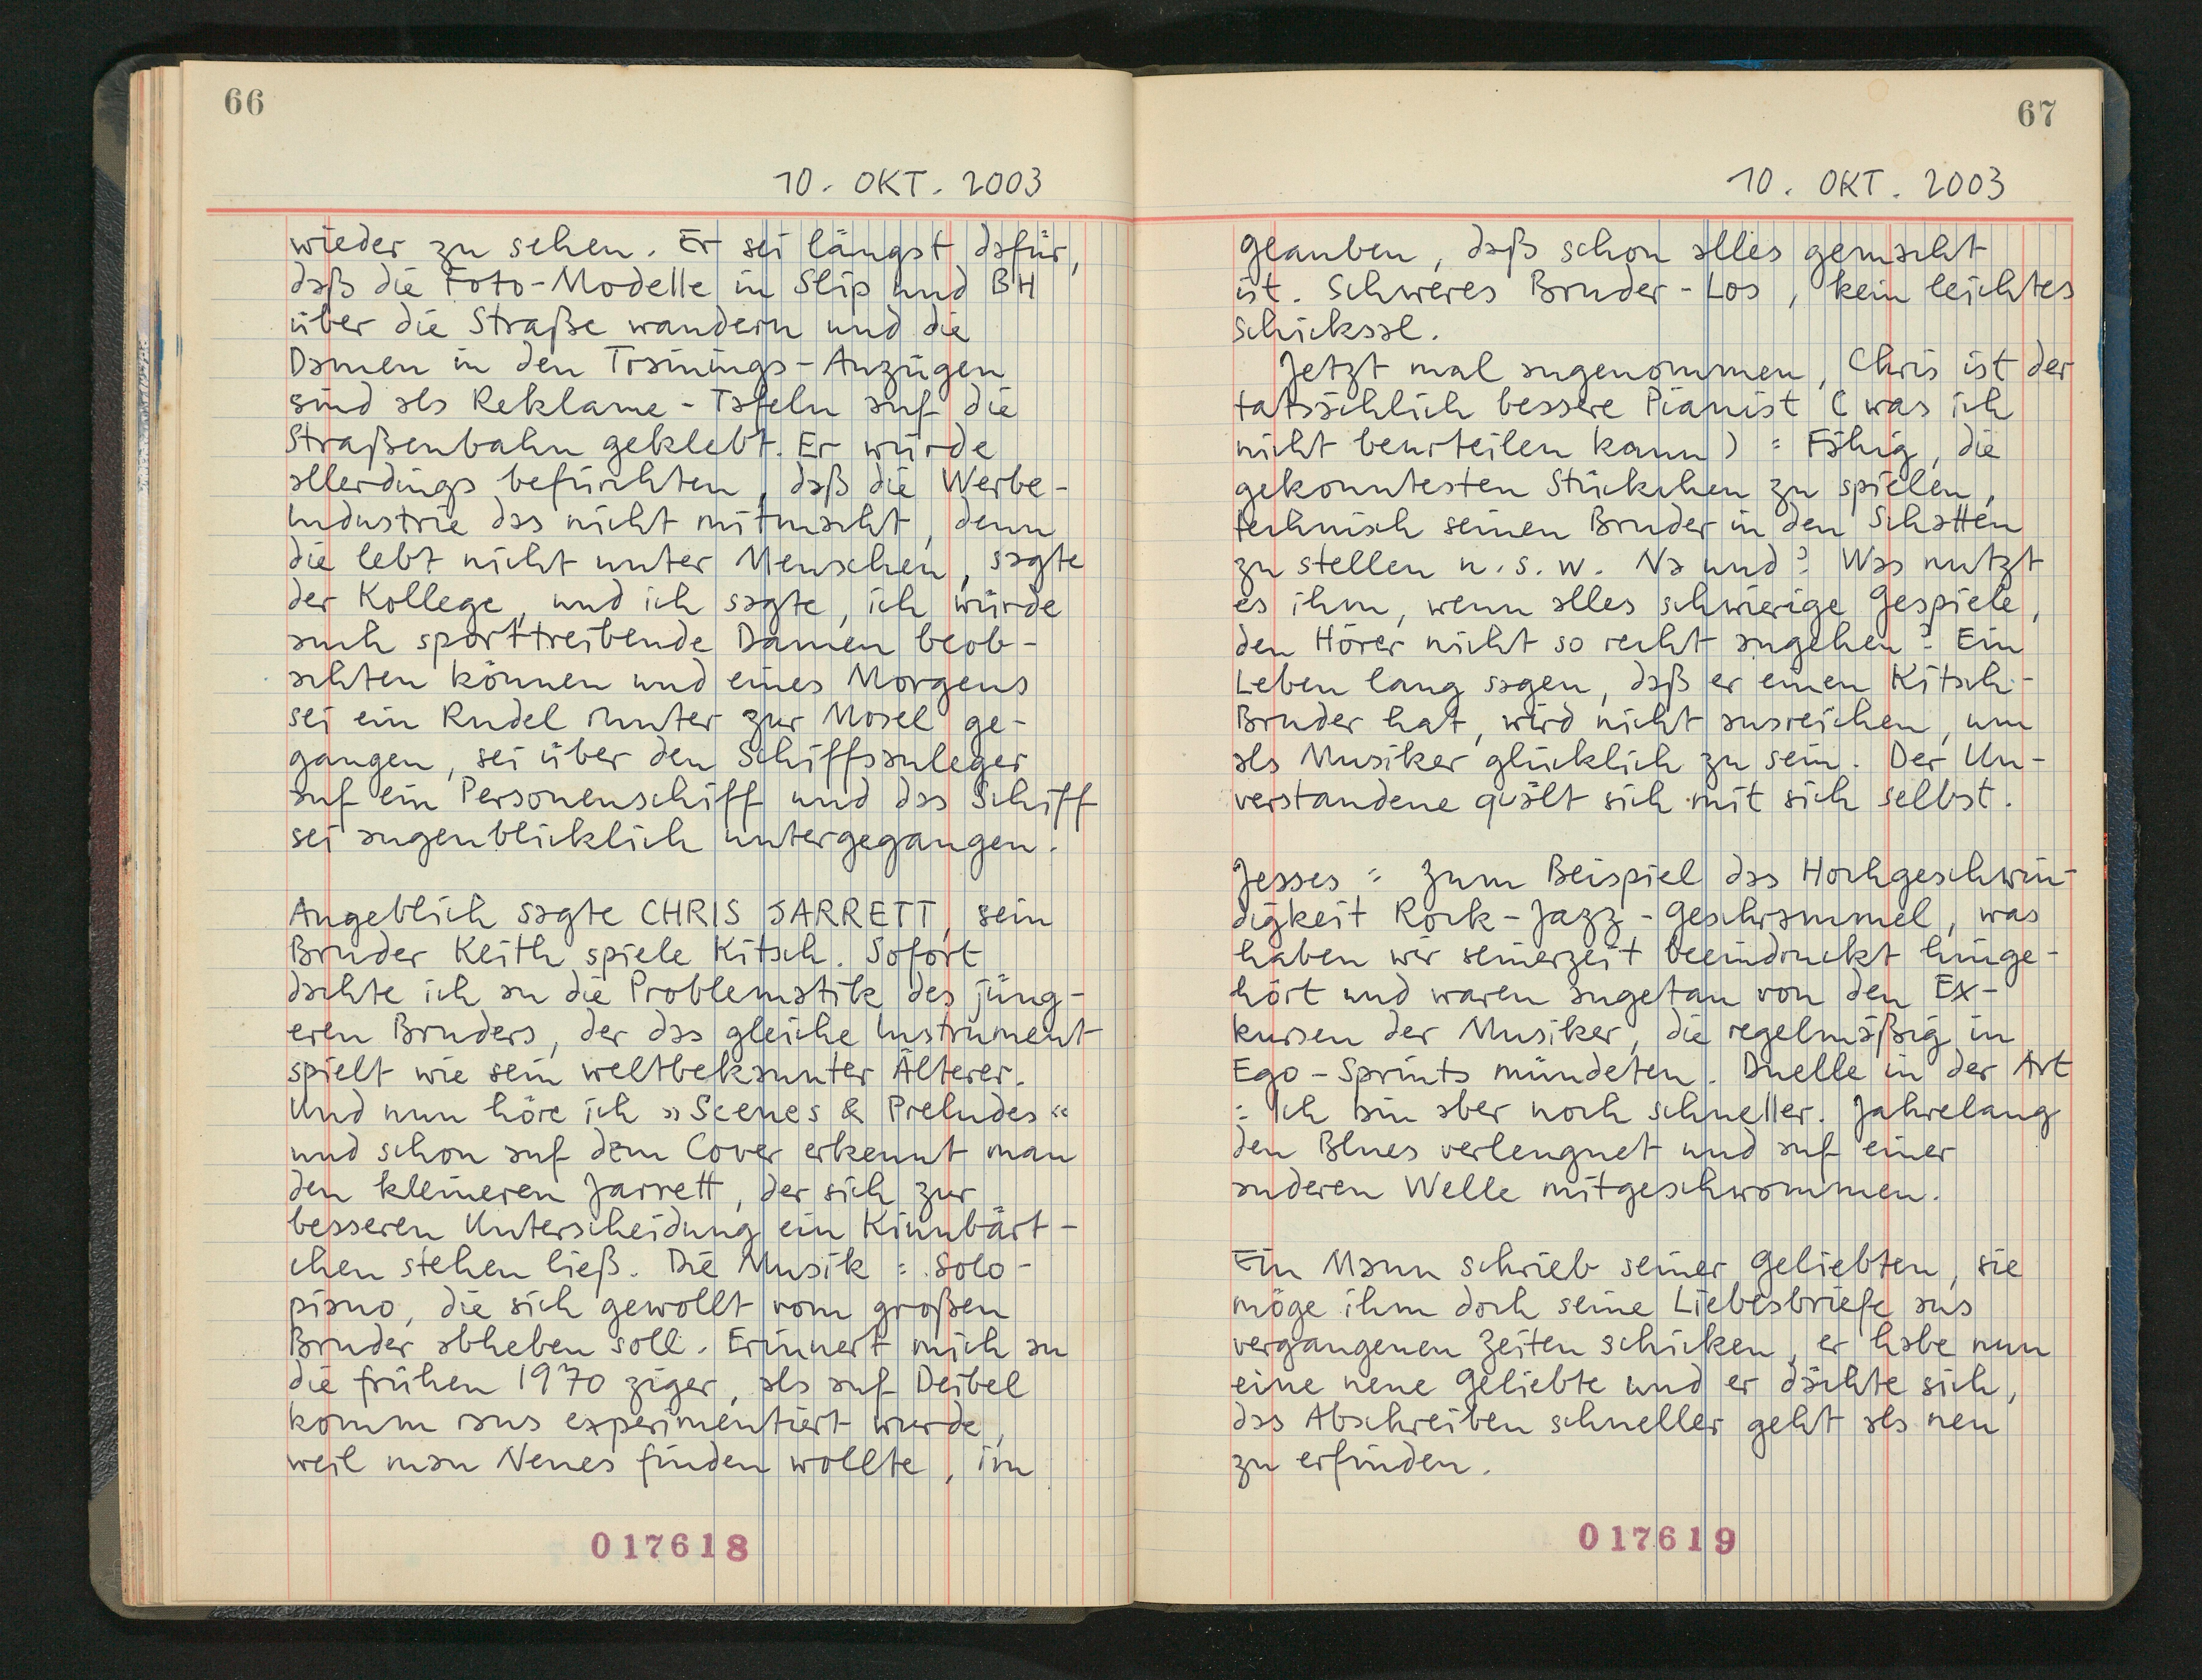 66
10. OKT. 2003
wieder zu sehen. Er sei längst dafür,
daß die Foto-Modelle in Slip und BH
über die Straße wandern und die
Damen in den Trainings-Anzügen
sind als Reklame-Tafeln auf die
Straßenbahn geklebt. Er würde
allerdings befürchten, daß die Werbe-
Industrie das nicht mitmacht, denn
die lebt nicht unter Menschen, sagte
der Kollege, und ich sagte, ich würde
auch sporttreibende Damen beob-
achten können und eines Morgens
sei ein Rudel runter zur Mosel ge-
gangen, sei über den Schiffsanleger
auf ein Personenschiff und das Schiff
sei augenblicklich untergegangen.
Angeblich sagte CHRIS JARRETT, sein
Bruder Keith spiele Kitsch. Sofort
dachte ich an die Problematik des jüng-
eren Bruders, der das gleiche Instrument
spielt wie sein weltbekannter Älterer.
Und nun höre ich »Scenes & Preludes«
und schon auf dem Cover erkennt man
den kleineren Jarrett, der sich zur
besseren Unterscheidung ein Kinnbärt-
chen stehen ließ. Die Musik : Solo-
piano, die sich gewollt vom großen
Bruder abheben soll. Erinnert mich an
die frühen 1970 ziger, als auf Deibel
komm raus experimentiert wurde,
weil man Neues finden wollte, im
017618
67
10. OKT. 2003
Glauben, daß schon alles gemacht
ist. Schweres Bruder-Los, kein leichtes
Schicksal.
Jetzt mal angenommen, Chris ist der
tatsächlich bessere Pianist (was ich
nicht beurteilen kann) : Fähig, die
gekonntesten Stückchen zu spielen,
technisch seinen Bruder in den Schatten
zu stellen u.s.w. Na und? Was nutzt
es ihm, wenn alles schwierige Gespiele,
den Hörer nicht so recht angehen? Ein
Leben lang sagen, daß er einen Kitsch-
Bruder hat, wird nicht ausreichen, um
als Musiker glücklich zu sein. Der Un-
verstandene quält sich mit sich selbst.
Jesses : Zum Beispiel das Hochgeschwin-
digkeit Rock-Jazz-Geschrammel, was
haben wir seinerzeit beeindruckt hinge-
hört und waren angetan von den Ex-
kursen der Musiker, die regelmäßig in
Ego-Sprints mündeten. Duelle in der Art
: Ich bin aber noch schneller. Jahrelang
den Blues verleugnet und auf einer
anderen Welle mitgeschwommen.
Ein Mann schrieb seiner Geliebten, sie
möge ihm doch seine Liebesbriefe aus
vergangenen Zeiten schicken, er habe nun
eine neue Geliebte und er dächte sich,
das Abschreiben schneller geht als neu
zu erfinden.
017619